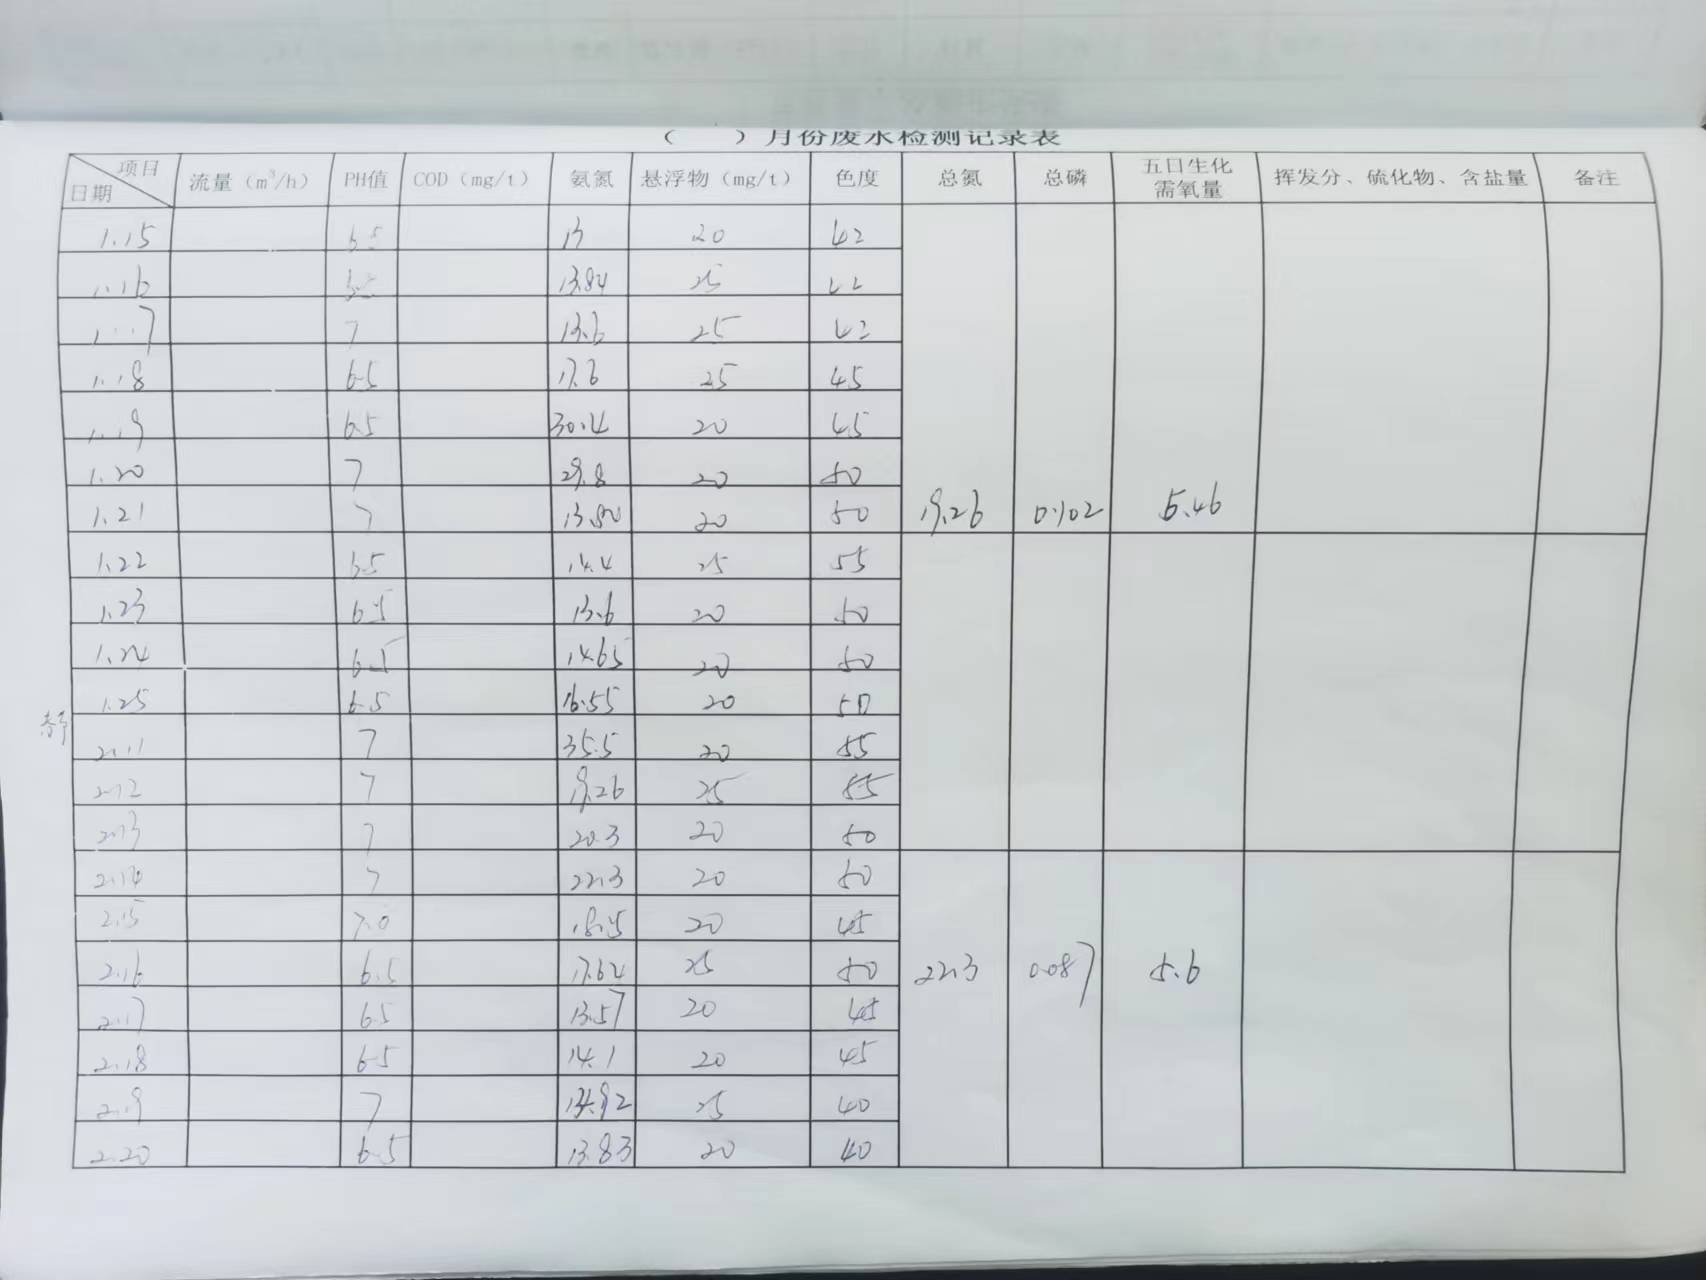 （ ）月份废水检测记录表
项目 日期 流量（m³/h） PH值 COD（mg/t） 氨氮 悬浮物（mg/t） 色度 总氮 总磷 五日生化需氧量 挥发分、硫化物、含盐量 备注
1.15 6.5 13 20 42
1.16 13.84 25
1.17 7 13.6 25 42
1.18 6.5 17.6 25 45
1.19 6.5 30.4 20 45
1.20 7 29.8 20 50
1.21 7 13.80 20 50 19.26 0.102 5.46
1.22 6.5 14.4 25 55
1.23 6.5 13.6 20 50
1.24 6.5 14.65 20 50
1.25 6.5 16.55 20 50
2.11 7 35.5 20 55
2.12 7 19.26 25 55
2.13 7 20.3 20 50
2.14 7 22.3 20 50
2.15 7.0 18.15 20 45
2.16 6.5 17.64 25 50 22.3 0.087 5.6
2.17 6.5 13.57 20 45
2.18 6.5 14.1 20 45
2.19 7 25 40
2.20 6.5 13.83 20 40